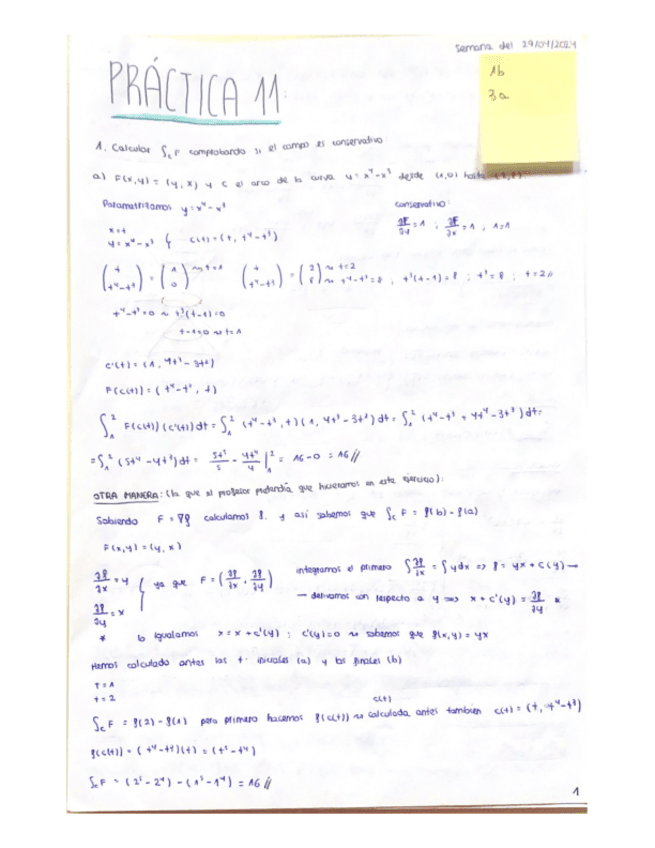 Semana del 29/04/2024
1b
3a
PRÁCTICA 11:
1. Calcular ∫c F comprobando si el campo es conservativo
a) F(x,y) = (y, x) y C el arco de la curva y = x⁴-x³ desde (1,0) hasta (2,8)
Parametrizamos y = x⁴-x³
conservativo:
x=t
y = x⁴-x³ { c(t) = (t, t⁴-t³)
∂F/∂y = 1 ; ∂F/∂x = 1 , 1=1
(t / t⁴-t³) = (1 / 0) ~> t=1
(t / t⁴-t³) = (2 / 8) ~> t=2 ~> t⁴-t³=8 , t³(t-1)=8 ; t³=8 ; t=2//
t⁴-t³=0 ~> t³(t-1)=0
t-1=0 ~> t=1
c'(t) = (1, 4t³-3t²)
F(c(t)) = (t⁴-t³, t)
∫₁² F(c(t))(c'(t)) dt = ∫₁² (t⁴-t³, t)(1, 4t³-3t²) dt = ∫₁² (t⁴-t³ + 4t⁴-3t³) dt =
= ∫₁² (5t⁴-4t³) dt = 5t⁵/5 - 4t⁴/4 |₁² = 16-0 = 16//
OTRA MANERA: (la que el profesor pretendía que hicieramos en este ejercicio):
Sabiendo F = ∇f calculamos f. y así sabemos que ∫c F = f(b) - f(a)
F(x,y) = (y, x)
∂f/∂x = y
∂f/∂y = x
} ya que F = (∂f/∂x, ∂f/∂y)
integramos el primero ∫∂f/∂x = ∫y dx => f = yx + c(y) —
— derivamos con respecto a y => x + c'(y) = ∂f/∂y *
* lo igualamos x = x + c'(y) ; c'(y) = 0 ~> sabemos que f(x,y) = yx
Hemos calculado antes las t iniciales (a) y las finales (b)
t=1
t=2
c(t)
∫c F = f(2) - f(1) pero primero hacemos f(c(t)) ~> calculada antes tambien c(t) = (t, t⁴-t³)
f(c(t)) = (t⁴-t³)(t) = (t⁵-t⁴)
∫c F = (2⁵-2⁴) - (1⁵-1⁴) = 16//
1